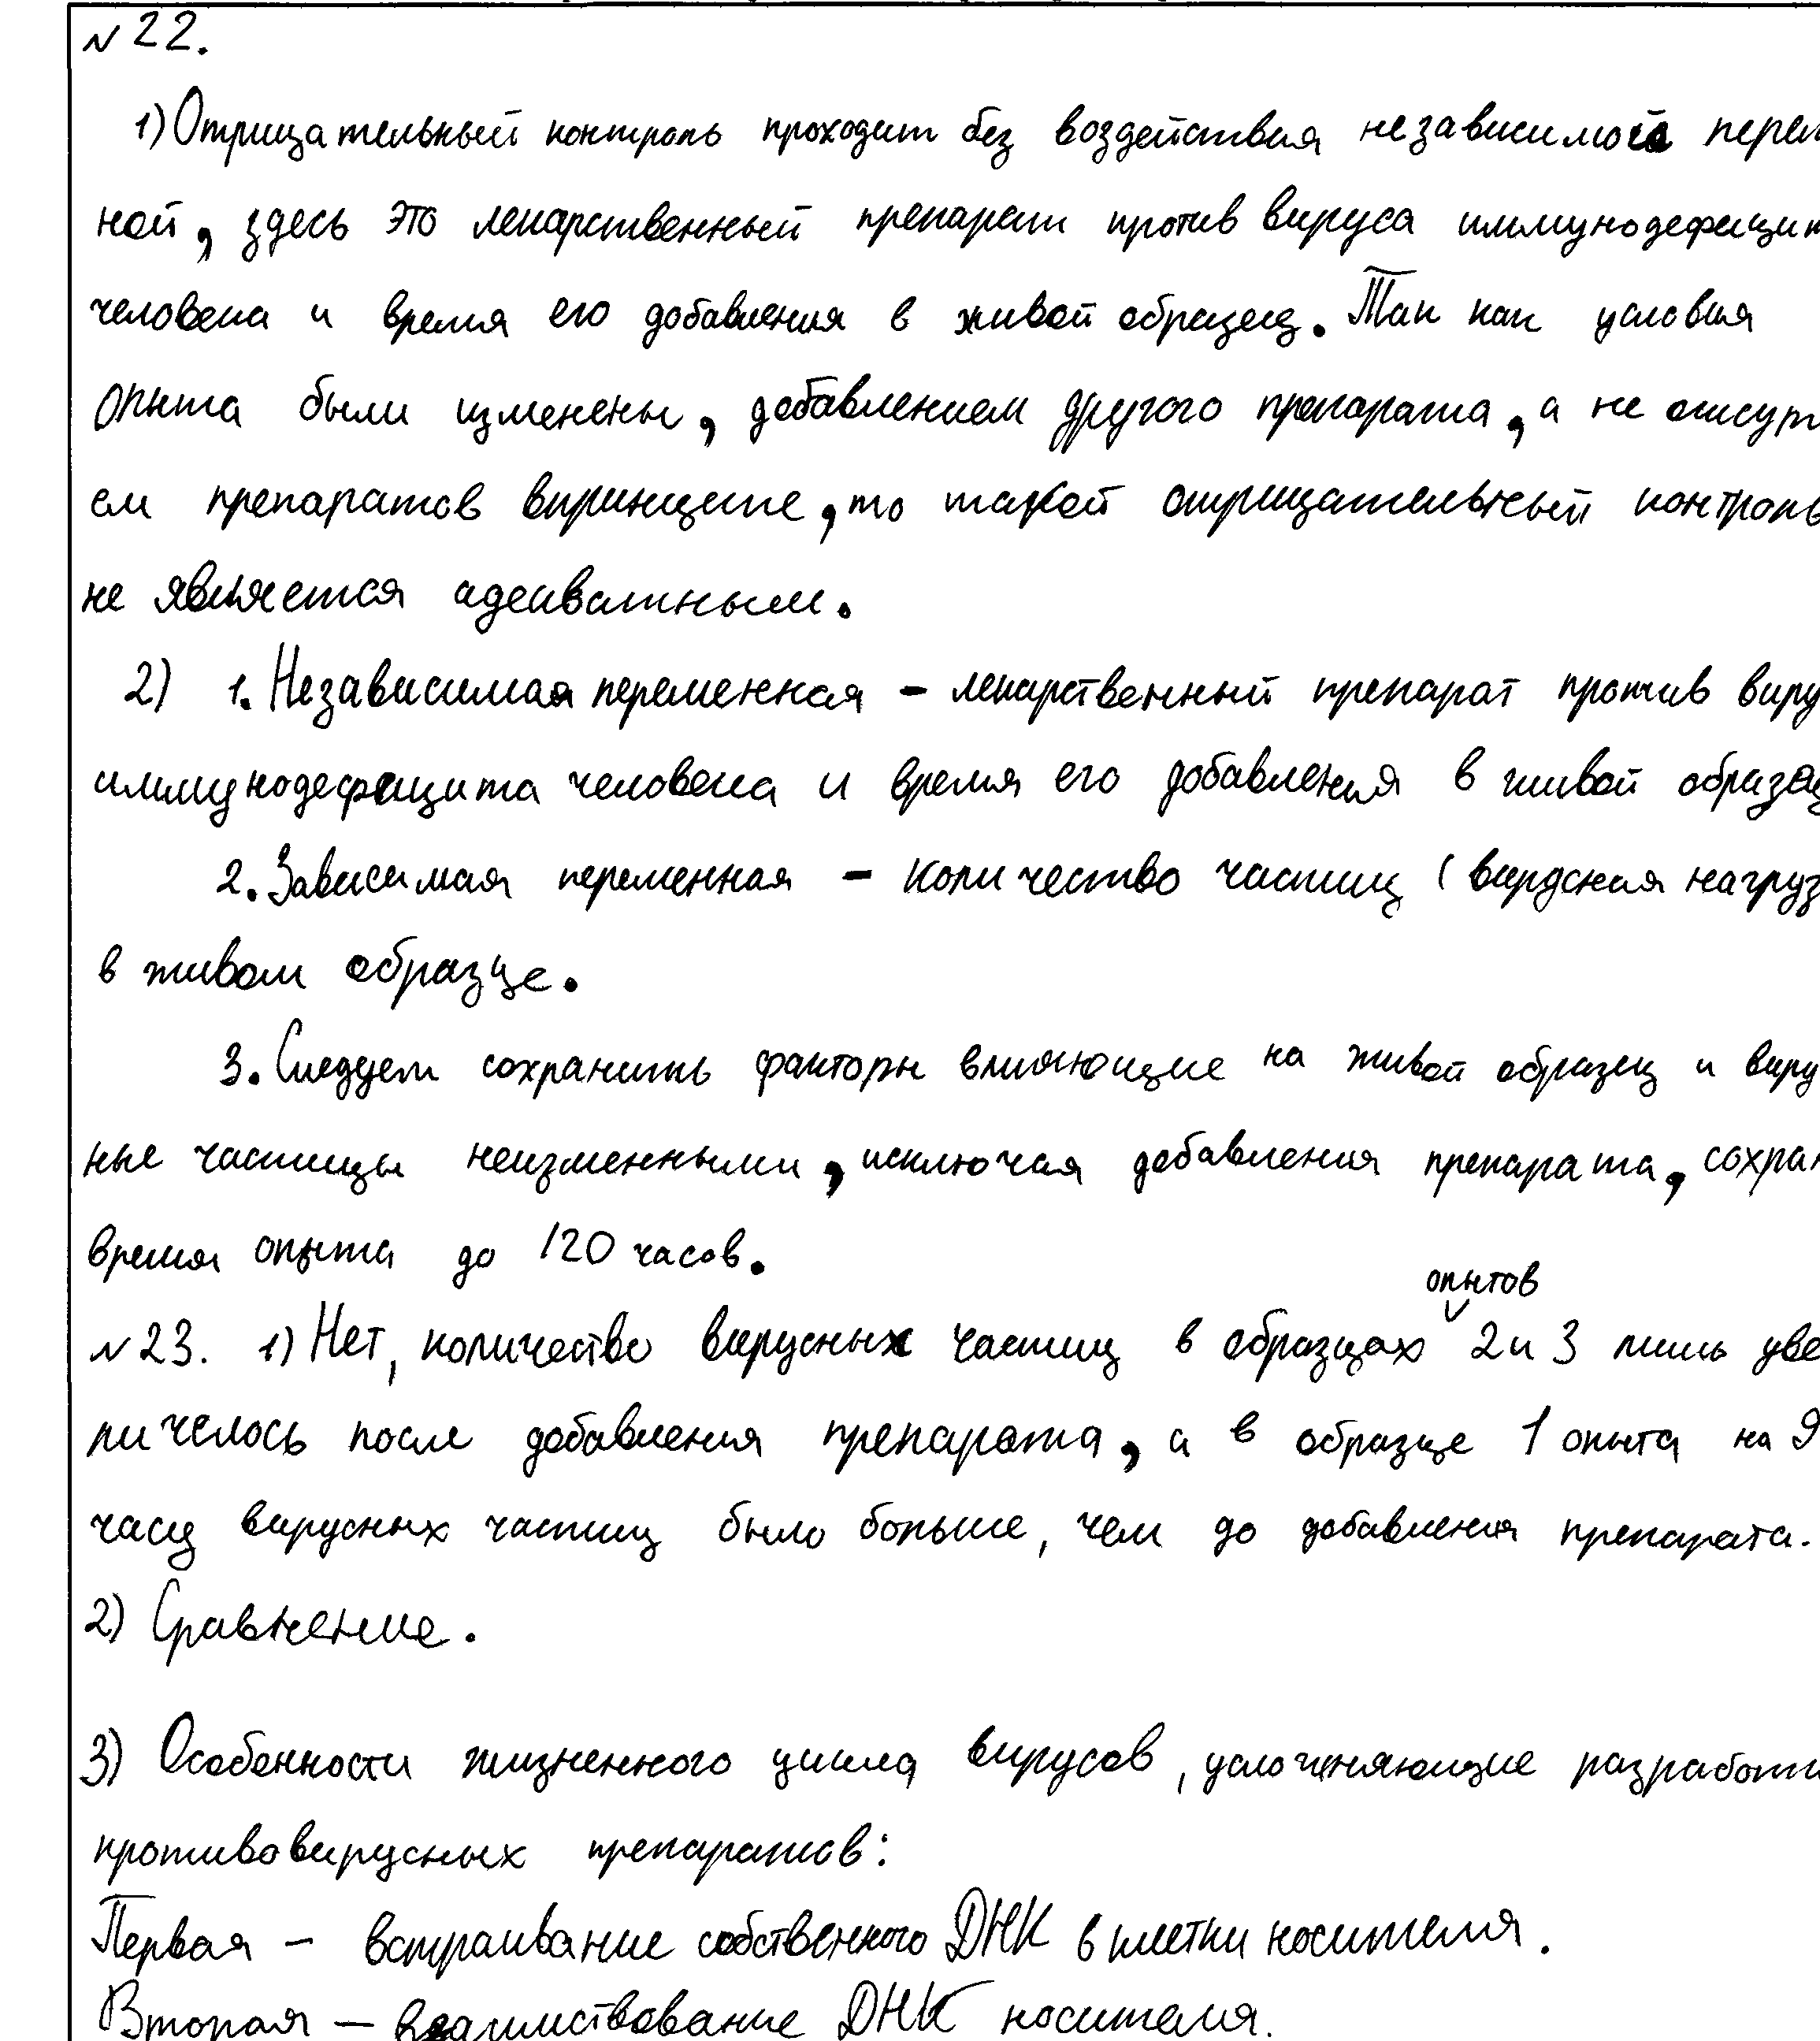 № 22.
1) Отрицательный контроль проходит без воздействия независимой перем
ной, здесь это лекарственный препарат против вируса иммунодефицит
человека и время его добавления в живой образец. Так как условия
опыта были изменены, добавлением другого препарата, а не отсут
ем препаратов впринципе, то такой отрицательный контроль
не является адекватным.
2) 1. Независимая переменная – лекарственный препарат против виру
иммунодефицита человека и время его добавления в живой образец
2. Зависимая переменная – количество частиц (вирусная нагруз
в живом образце.
3. Следует сохранить факторы влияющие на живой образец и виру
ные частицы неизменными, исключая добавления препарата, сохран
время опыта до 120 часов.
опытов
№ 23. 1) Нет, количество вирусных частиц в образцах 2 и 3 лишь уве
личелось после добавления препарата, а в образце 1 опыта на 9
часу вирусных частиц было больше, чем до добавления препарата.
2) Сравнение.
3) Особенности жизненного цикла вирусов, усложняющие разработк
противовирусных препаратов:
Первая – встраивание собственного ДНК в клетки носителя.
Вторая – ДНК носителя.